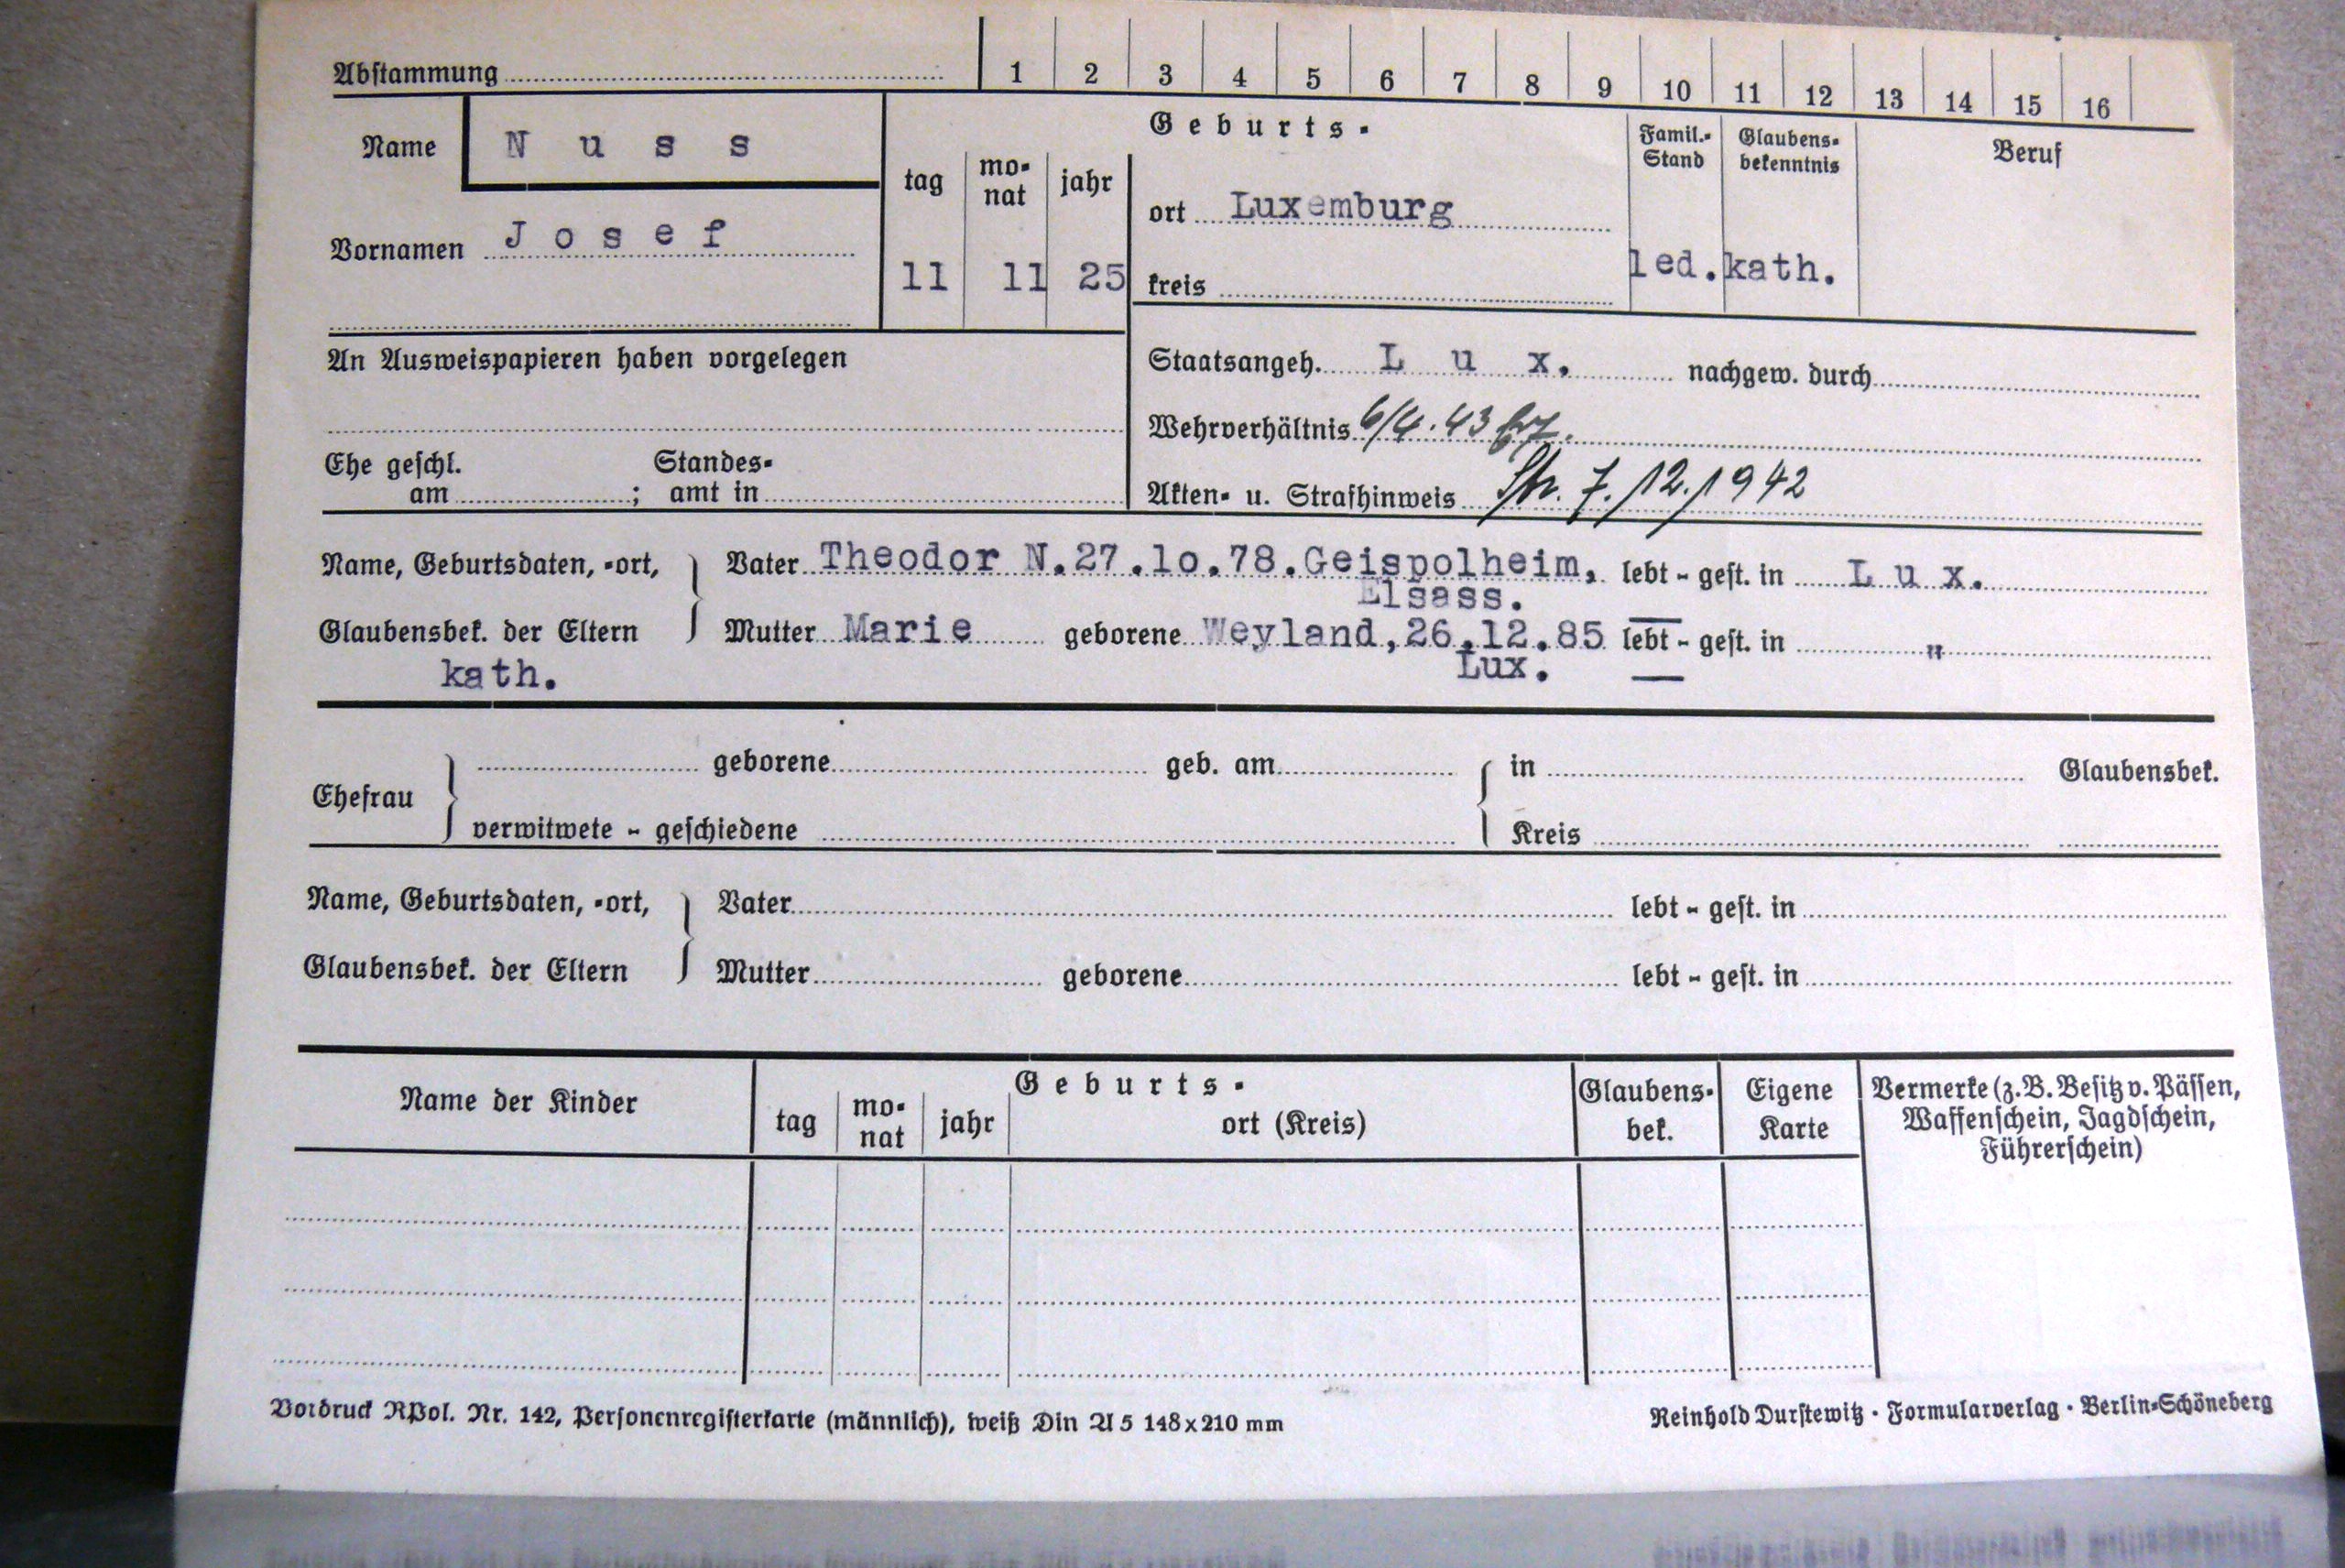 Abstammung 1 2 3 4 5 6 7 8 9 10 11 12 13 14 15 16
Name N u s s
Vornamen J o s e f
Geburts-
tag mo- jahr
nat
11 11 25
ort Luxemburg
kreis
Famil.- Glaubens- Beruf
Stand bekenntnis
led. kath.
An Ausweispapieren haben vorgelegen
Ehe geschl. Standes-
am ; amt in
Staatsangeh. L u x. nachgew. durch
Wehrverhältnis 6/4.43
Akten- u. Strafhinweis 7./12./1942
Name, Geburtsdaten, -ort, Vater Theodor N.27.lo.78.Geispolheim, lebt - gest. in L u x.
Elsass.
Glaubensbek. der Eltern Mutter Marie geborene Weyland,26.12.85 lebt - gest. in "
kath. Lux.
Ehefrau
geborene geb. am in Glaubensbek.
verwitwete - geschiedene Kreis
Name, Geburtsdaten, -ort, Vater lebt - gest. in
Glaubensbek. der Eltern Mutter geborene lebt - gest. in
Name der Kinder
Geburts-
tag mo- jahr ort (Kreis)
nat
Glaubens-
bek.
Eigene
Karte
Vermerke (z.B. Besitz v. Pässen,
Waffenschein, Jagdschein,
Führerschein)
Vordruck RPol. Nr. 142, Personenregisterkarte (männlich), weiß Din A 5 148x210 mm
Reinhold Durstewitz · Formularverlag · Berlin-Schöneberg